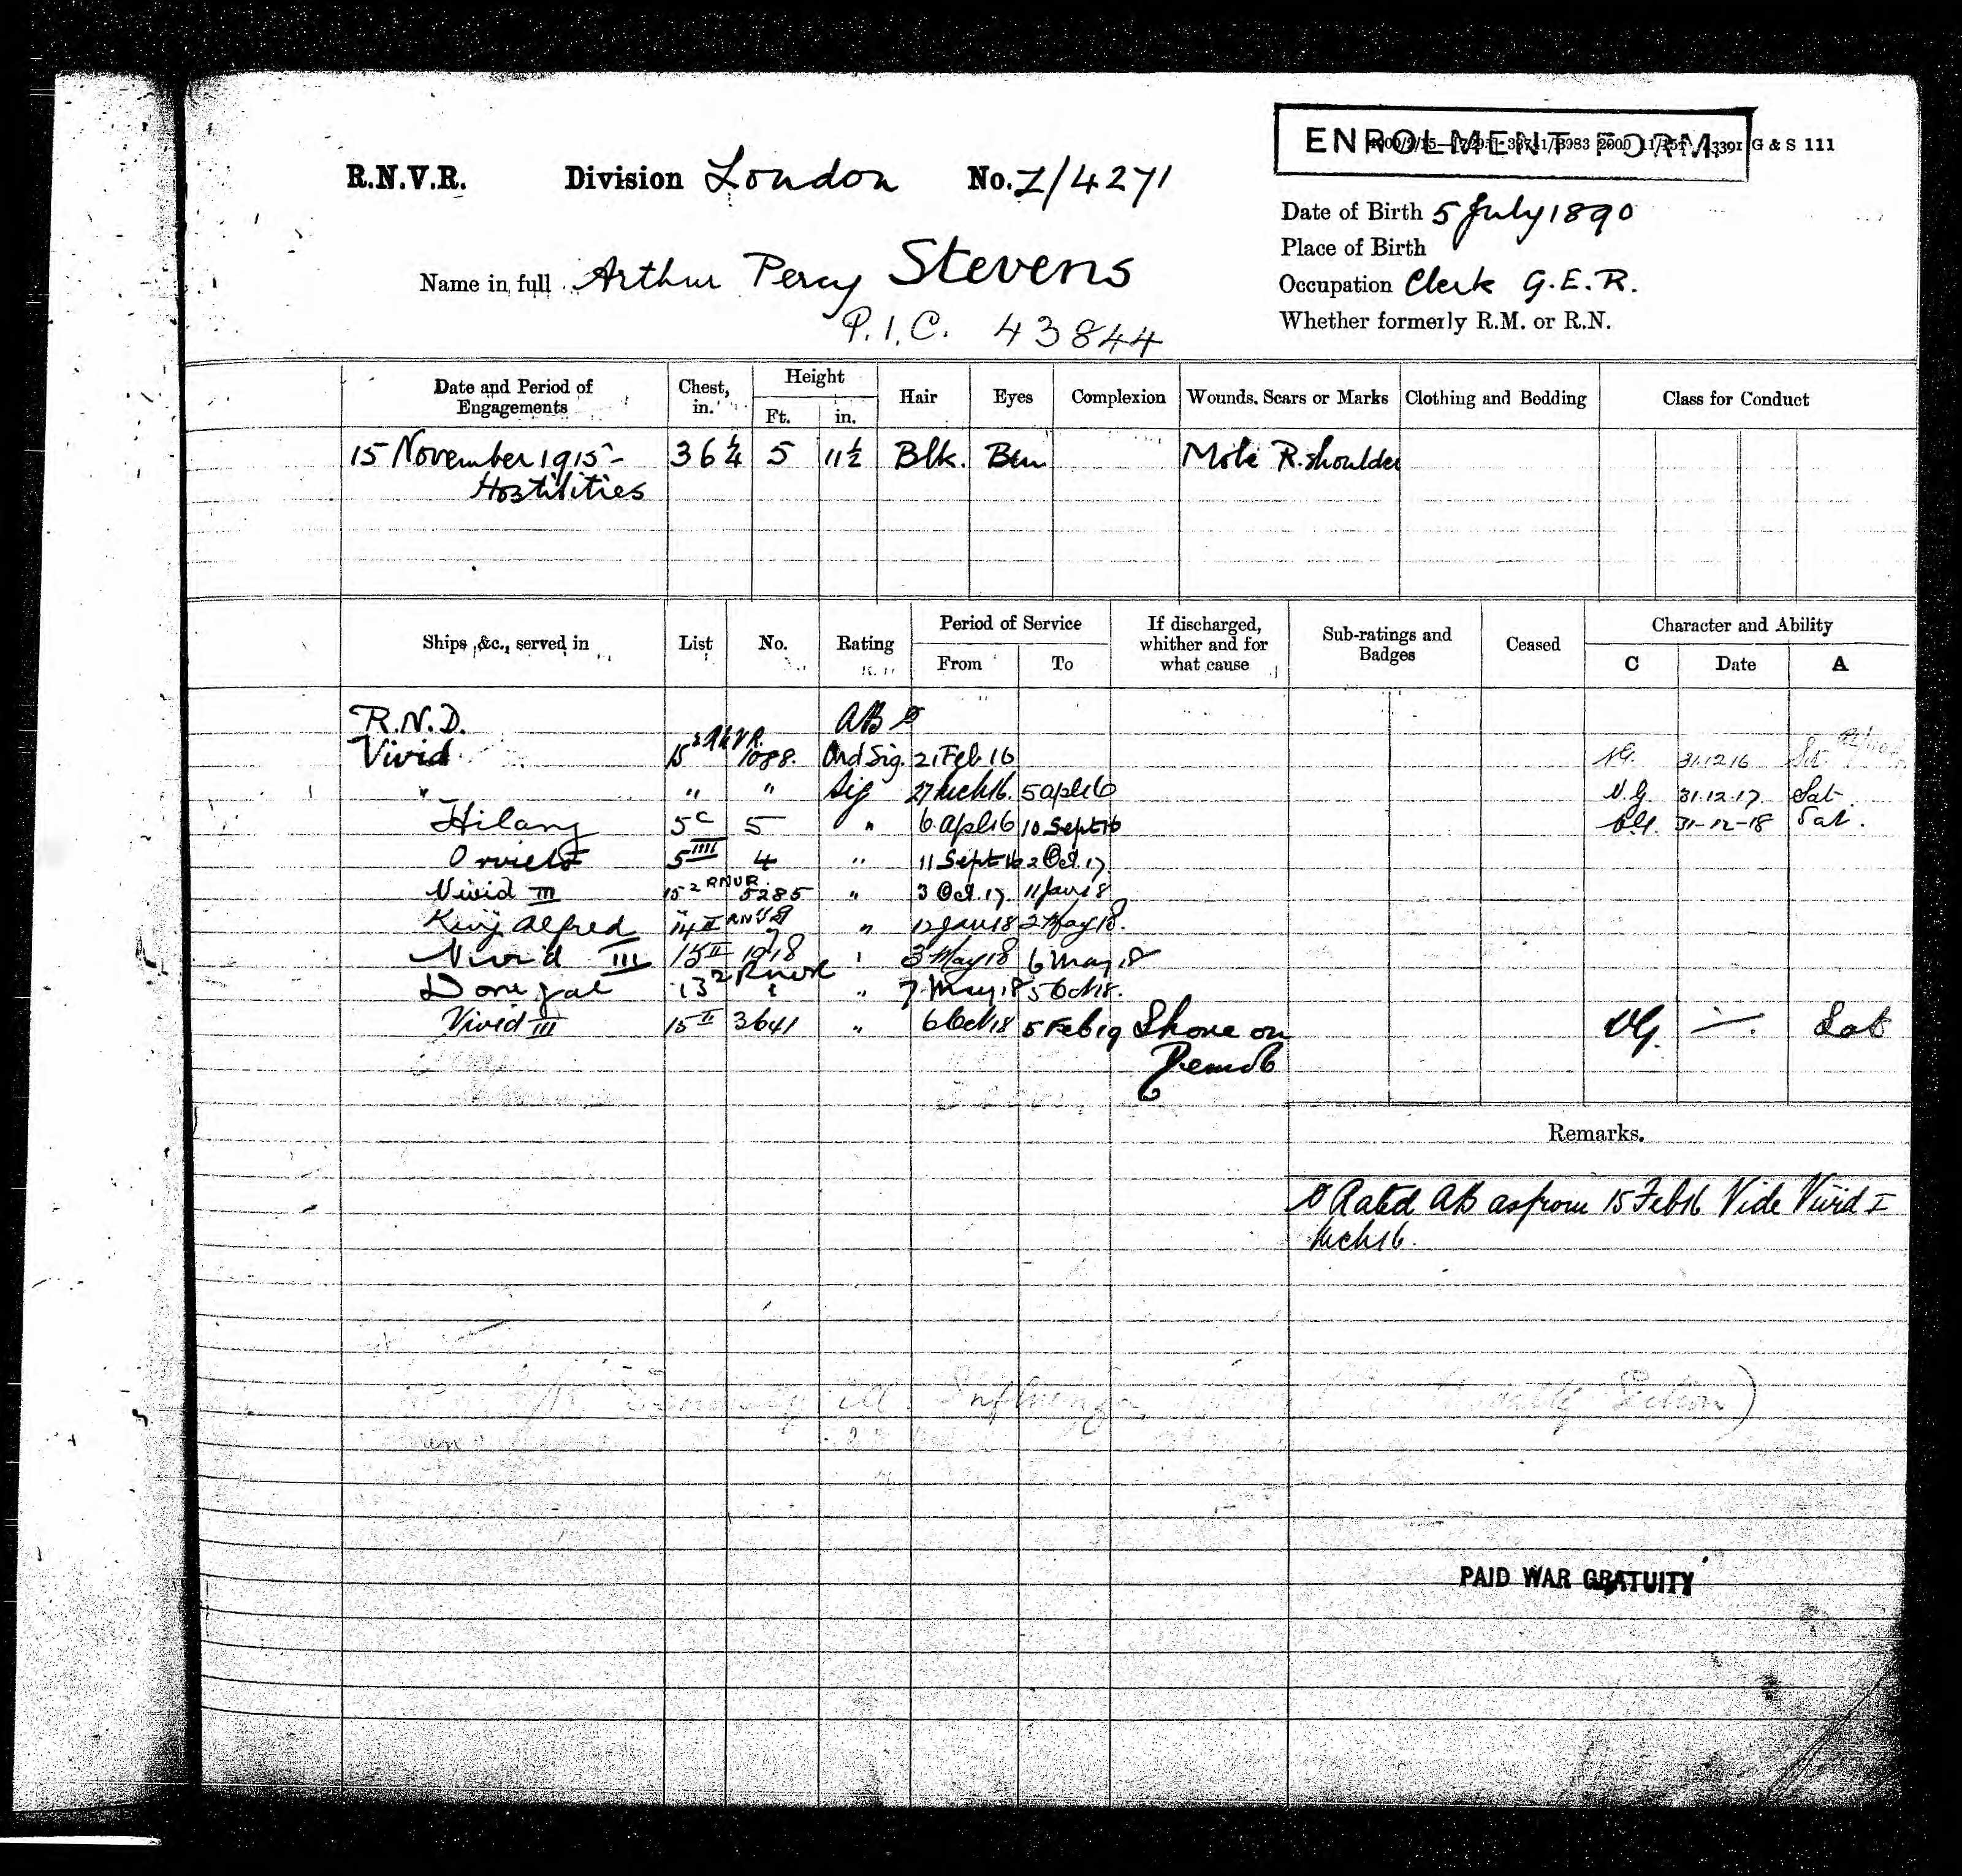 ENROLMENT FORM
G & S 111
R.N.V.R. Division London No. Z/4271
Date of Birth 5 July 1890
Place of Birth
Name in full Arthur Percy Stevens
Occupation Clerk G.E.R.
P.I.C. 43844
Whether formerly R.M. or R.N.
Date and Period of Engagements Chest, in. Height Ft. in. Hair Eyes Complexion Wounds, Scars or Marks Clothing and Bedding Class for Conduct
15 November 1915 - 36 1/4 5 11 1/2 Blk. Brn Mole R. shoulder
Hostilities
Ships, &c., served in List No. Rating Period of Service From To If discharged, whither and for what cause Sub-ratings and Badges Ceased Character and Ability C Date A
R.N.D. AB ø
Vivid 15 2 RNVR 1088. Ord Sig. 21 Feb 16 VG. 31.12.16 Sat
" " " Sig 27 Mch 16. 5 Apl 16 V.G 31.12.17. Sat
Hilary 5C 5 " 6 Apl 16 10 Sept 16 VG. 31-12-18 Sat.
Orvieto 5 IIII 4 " 11 Sept 16 2 Oct. 17
Vivid III 15 2 RNVR 5285 " 3 Oct. 17. 11 Jan 18
King Alfred 14 II RNVR " 12 Jan 18 2 May 18.
Vivid III 15 II 1018 " 3 May 18 6 May 18
Donegal 13 2 RNVR " 7 May 18 5 Oct 18.
Vivid III 15 II 3641 " 6 Oct 18 5 Feb 19 Shore on VG. Sat
Demob
Remarks.
ø Rated AB as from 15 Feb 16 Vide Vivid I
Mch 16.
Influenza
Section)
PAID WAR GRATUITY